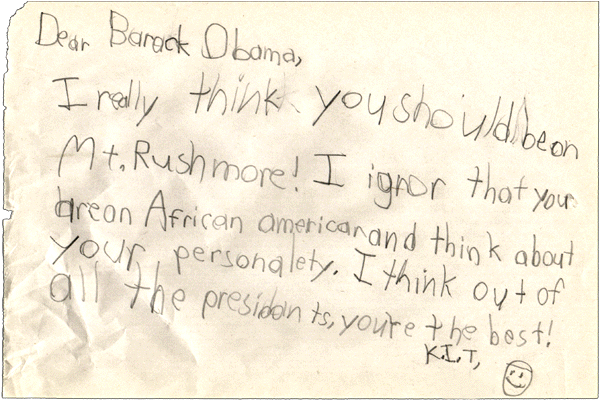 Dear Barack Obama,
I really think you should be on
Mt. Rushmore! I ignor that your
areon African american and think about
your personalety. I think out of
all the presidants, you're the best!
K.I.T,